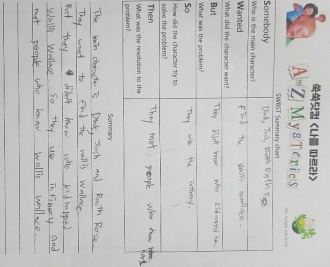 쑥쑥닷컴 <나를 따르라>
A to Z MYSTERIES
SWBST Summary chart
Somebody
Who is the main character?
Dink, Josh, Ruth Rose
Wanted
What did the character want?
find the Wallis wallace.
But
What was the problem?
They didn't know who kidnapped
So
How did the character try to
solve the problem?
They use the
Then
What was the resolution to the
problem?
They met people who know
Summary
The main character is Dink, Josh and Rooth Rose.
They want to find the wallis wallace
But they didn't know who kidnapped
Wallis Wallace. So they use infimory and
met people who know wallis wallace.